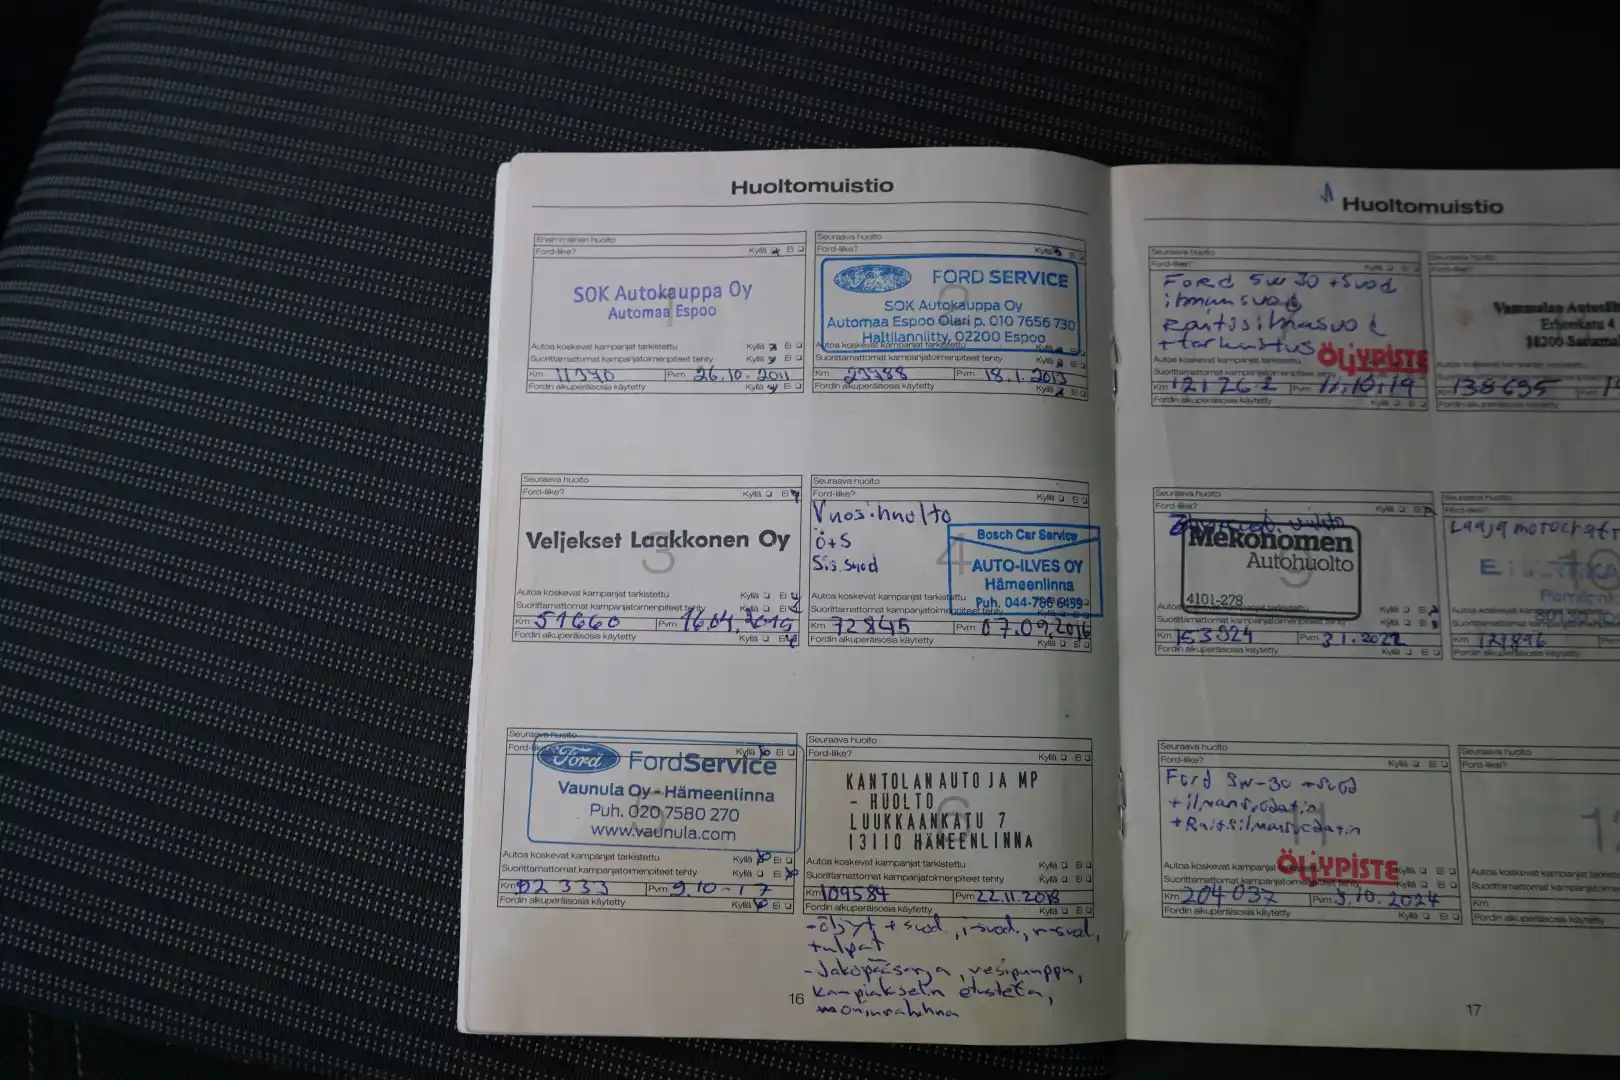 Huoltomuistio
Ensimmäinen huolto
Ford-liike? Kyllä Ei
SOK Autokauppa Oy
Automaa Espoo
Autoa koskevat kampanjat tarkistettu Kyllä Ei
Suorittamattomat kampanjatoimenpiteet tehty Kyllä Ei
Km 11370 Pvm 26.10.2011
Fordin alkuperäisosia käytetty Kyllä Ei
Seuraava huolto
Ford-liike? Kyllä Ei
2
FORD SERVICE
SOK Autokauppa Oy
Automaa Espoo Olari p. 010 7656 730
Haltilanniitty, 02200 Espoo
Autoa koskevat kampanjat tarkistettu
Suorittamattomat kampanjatoimenpiteet tehty Kyllä Ei
Km 23788 Pvm 18.1.2013
Fordin alkuperäisosia käytetty Kyllä Ei
Seuraava huolto
Ford-liike? Kyllä Ei
3
Veljekset Laakkonen Oy
Autoa koskevat kampanjat tarkistettu Kyllä Ei
Suorittamattomat kampanjatoimenpiteet tehty Kyllä Ei
Km 51660 Pvm 16.04.2015
Fordin alkuperäisosia käytetty Kyllä Ei
Seuraava huolto
Ford-liike? Kyllä Ei
Vuosihuolto
ö+S
Sis.suod
4
Bosch Car Service
AUTO-ILVES OY
Hämeenlinna
Puh. 044-786 6499
Autoa koskevat kampanjat tarkistettu
Suorittamattomat kampanjatoimenpiteet tehty
Km 72845 Pvm 07.09.2016
Fordin alkuperäisosia käytetty Kyllä Ei
Seuraava huolto
Ford-liike? Kyllä Ei
5
Ford FordService
Vaunula Oy - Hämeenlinna
Puh. 020 7580 270
www.vaunula.com
Autoa koskevat kampanjat tarkistettu Kyllä Ei
Suorittamattomat kampanjatoimenpiteet tehty Kyllä Ei
Km 92 333 Pvm 9.10-17
Fordin alkuperäisosia käytetty Kyllä Ei
Seuraava huolto
Ford-liike? Kyllä Ei
6
KANTOLAN AUTO JA MP
- HUOLTO
LUUKKAANKATU 7
13110 HÄMEENLINNA
Autoa koskevat kampanjat tarkistettu Kyllä Ei
Suorittamattomat kampanjatoimenpiteet tehty Kyllä Ei
Km 109584 Pvm 22.11.2018
Fordin alkuperäisosia käytetty Kyllä Ei
- öljyt + suod., i-suod., r-suod.,
+tulpat
- Jakopääsarja, vesipumppu,
kampiakselin etusteta,
moniurahihna
16
Huoltomuistio
Seuraava huolto
Ford-liike? Kyllä Ei
Ford 5w30 +Suod
ilmansuod
Raitisilmasuod
+tarkastus
ÖLJYPISTE
Autoa koskevat kampanjat
Suorittamattomat
Km 121762 Pvm 11.10.19
Fordin alkuperäisosia käytetty Kyllä Ei
Seuraava huolto
Ford-liike?
Vammalan
38200
138695 Pvm
Fordin alkuperäisosia käytetty
Seuraava huolto
Ford-liike? Kyllä Ei
9
Mekonomen
Autohuolto
4101-278
Km 153924 Pvm 31.2022
Fordin alkuperäisosia käytetty Kyllä Ei
Seuraava huolto
Ford-liike?
10
Km
Fordin alkuperäisosia käytetty
Seuraava huolto
Ford-liike? Kyllä Ei
Ford 5w-30 +suod
+ilmansuodatin
+Raitisilmansuodatin
11
ÖLJYPISTE
Autoa koskevat kampanjat Kyllä Ei
Suorittamattomat kampanjatoimenpiteet tehty Kyllä Ei
Km 204037 Pvm 3.10.2024
Fordin alkuperäisosia käytetty Kyllä Ei
Seuraava huolto
Ford-liike?
12
Autoa koskevat kampanjat
Suorittamattomat kampanjatoimenpiteet
Km
Fordin alkuperäisosia käytetty
17